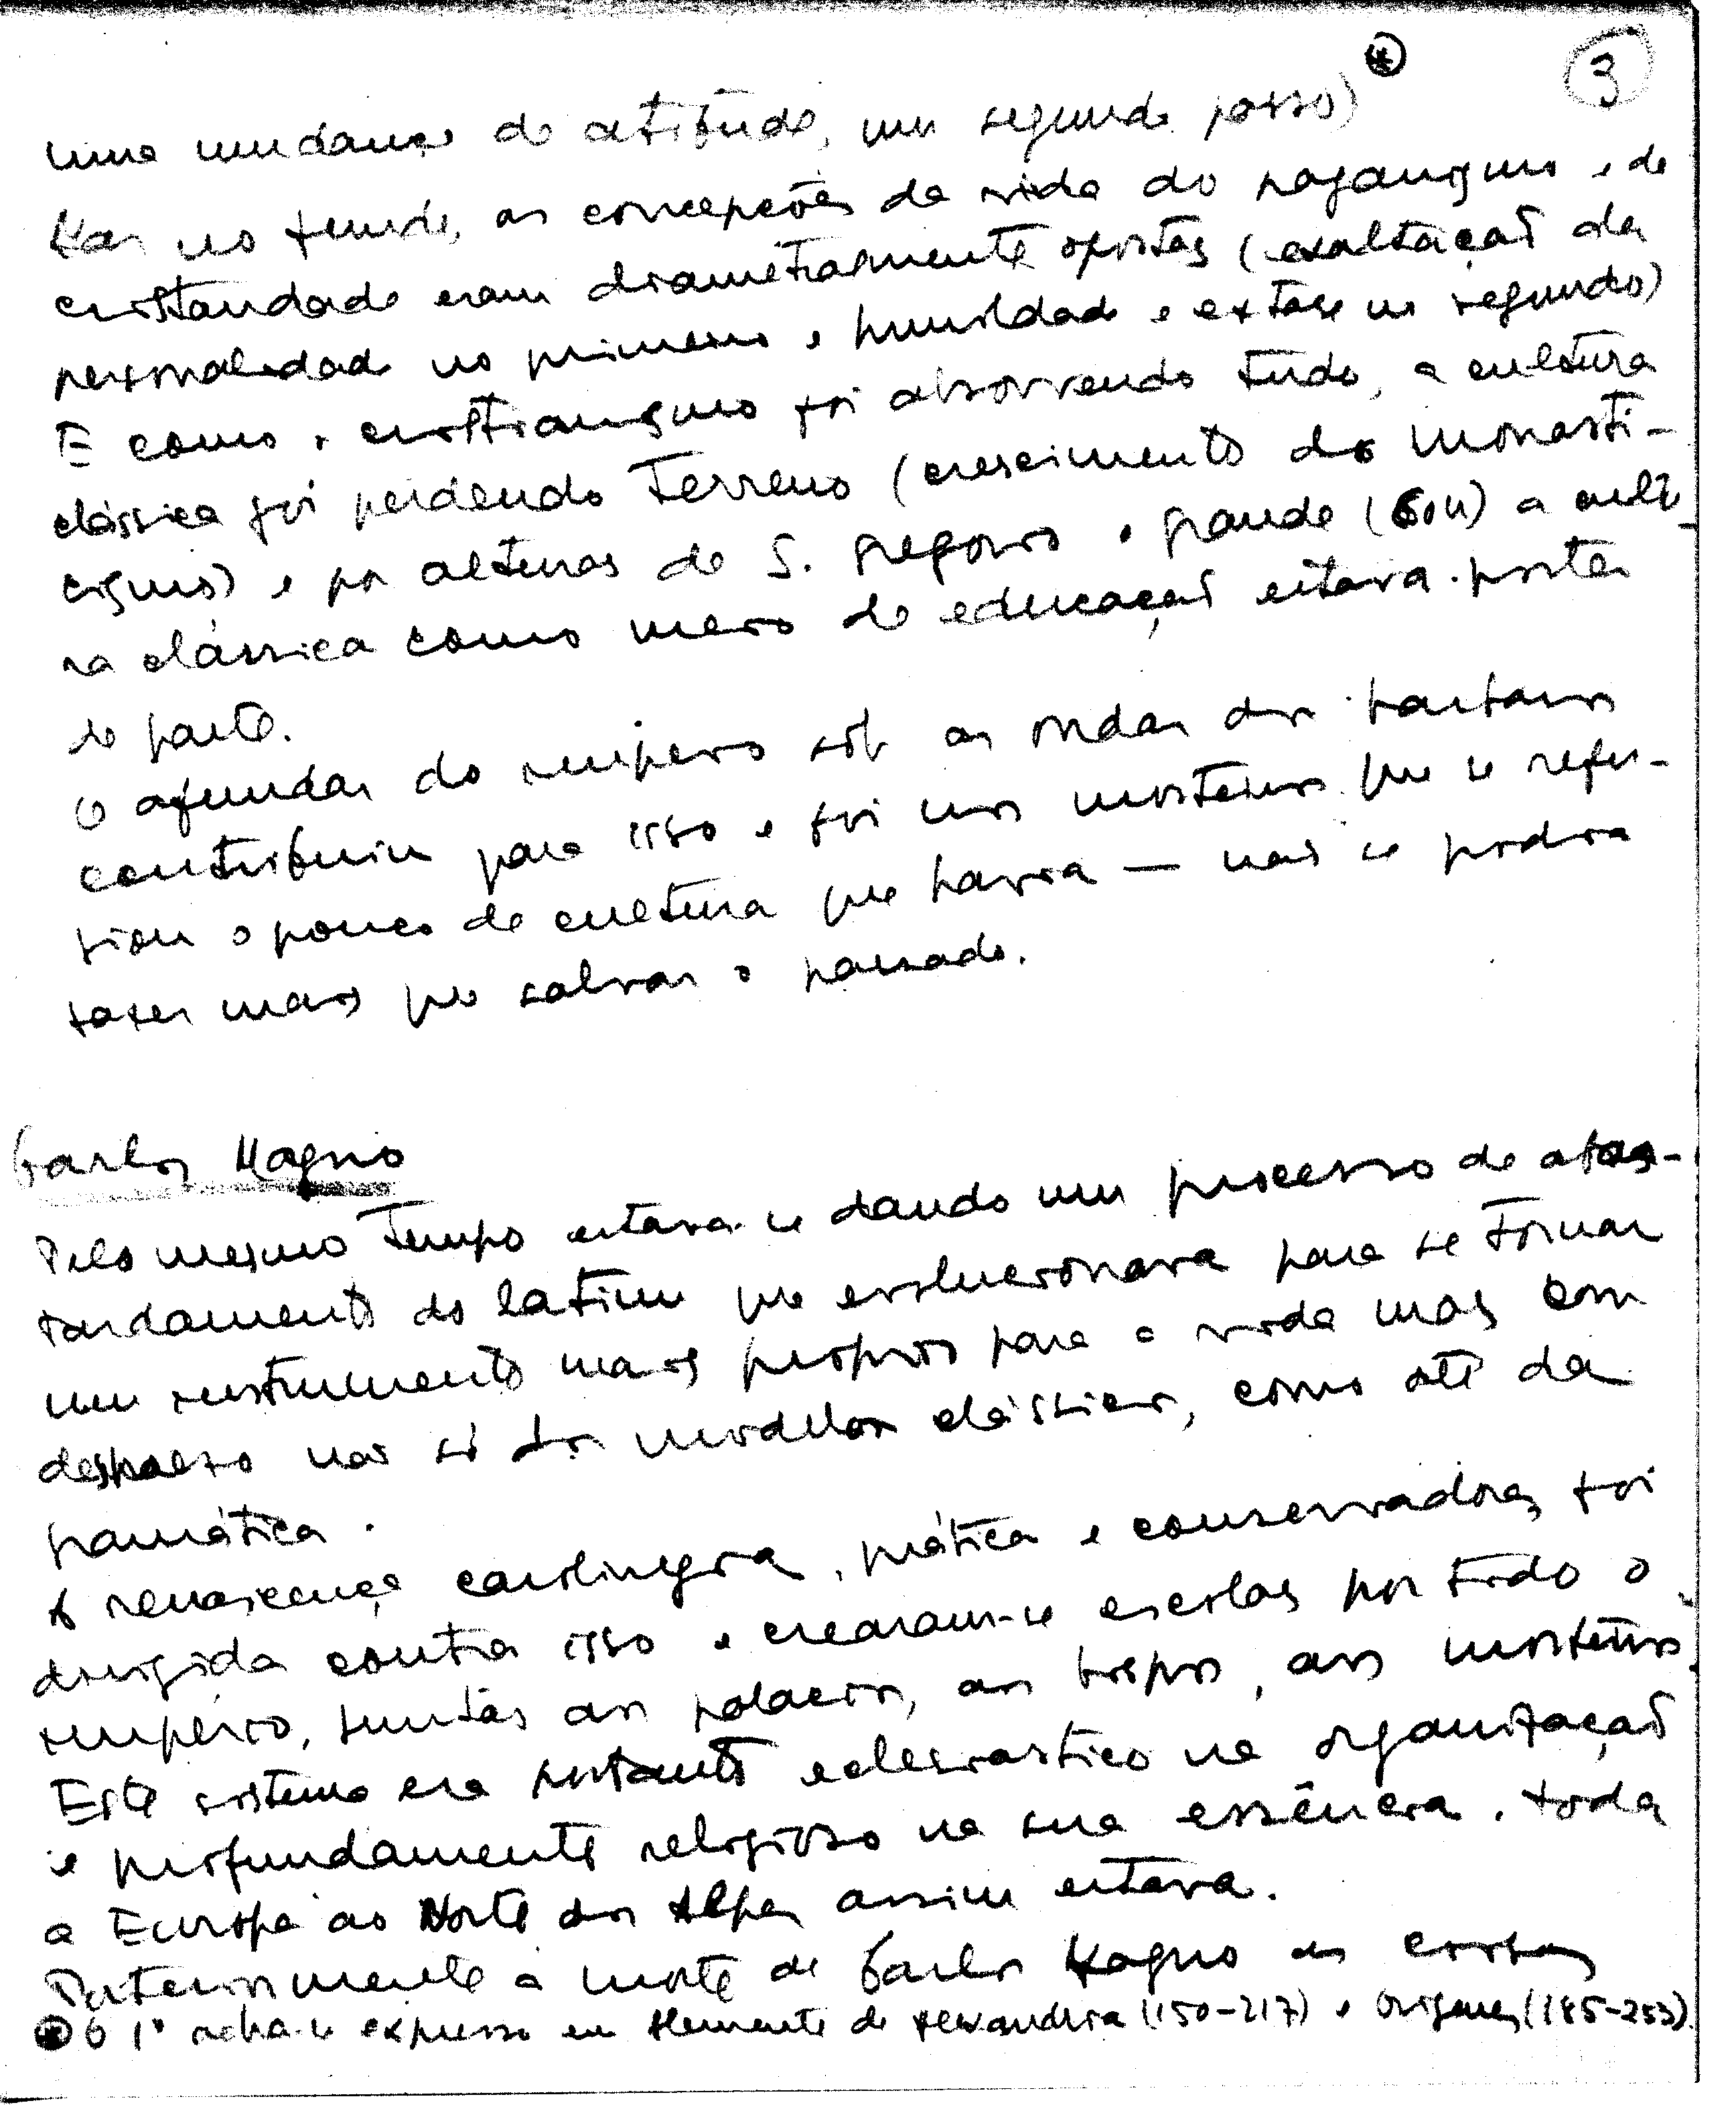 3
uma mudança de atitude, um segundo passo) *
Mas no fundo, as concepções da vida do paganismo e da
cristandade eram diametralmente opostas (exaltação da
personalidade no primeiro e humildade e extase no segundo)
E como o cristianismo foi absorvendo tudo, a cultura
clássica foi perdendo terreno (crescimento do monasti-
cismo) e por alturas de S. Gregorio o grande (604) a cultu-
ra clássica como meio de educação estava posta
de parte.
O afundar do império sob as ondas dos bárbaros
contribuiu para isso e foi nos mosteiros que se refu-
giou o pouco de cultura que havia — não se podia
fazer mais que salvar o passado.
Carlos Magno
Pelo mesmo tempo estava-se dando um processo de abas-
tardamento do latim que evolucionava para se tornar
um instrumento mais proprio para a vida mas com
desprezo não só dos modelos clássicos, como até da
gramática.
A renascença carolingia, prática e conservadora, foi
dirigida contra isso e crearam-se escolas por todo o
império, juntas aos palacios, aos bispos, aos mosteiros.
Este sistema era portanto eclesiastico na organização
e profundamente religioso na sua essência. Toda
a Europa ao Norte dos Alpes assim estava.
Posteriormente à morte de Carlos Magno as coisas
* O 1º acha-se expresso em Clemente de Alexandria (150-217) e Origenes (185-253).